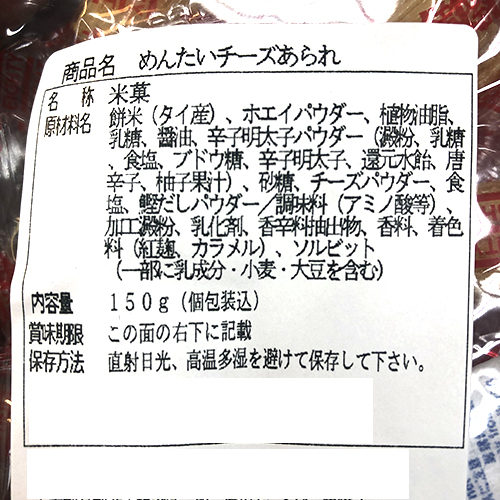 商品名 めんたいチーズあられ
名称 米菓
原材料名 餅米（タイ産）、ホエイパウダー、植物油脂、
乳糖、醤油、辛子明太子パウダー（澱粉、乳糖
、食塩、ブドウ糖、辛子明太子、還元水飴、唐
辛子、柚子果汁）、砂糖、チーズパウダー、食
塩、鰹だしパウダー／調味料（アミノ酸等）、
加工澱粉、乳化剤、香辛料抽出物、香料、着色
料（紅麹、カラメル）、ソルビット
（一部に乳成分・小麦・大豆を含む）
内容量 １５０ｇ（個包装込）
賞味期限 この面の右下に記載
保存方法 直射日光、高温多湿を避けて保存して下さい。